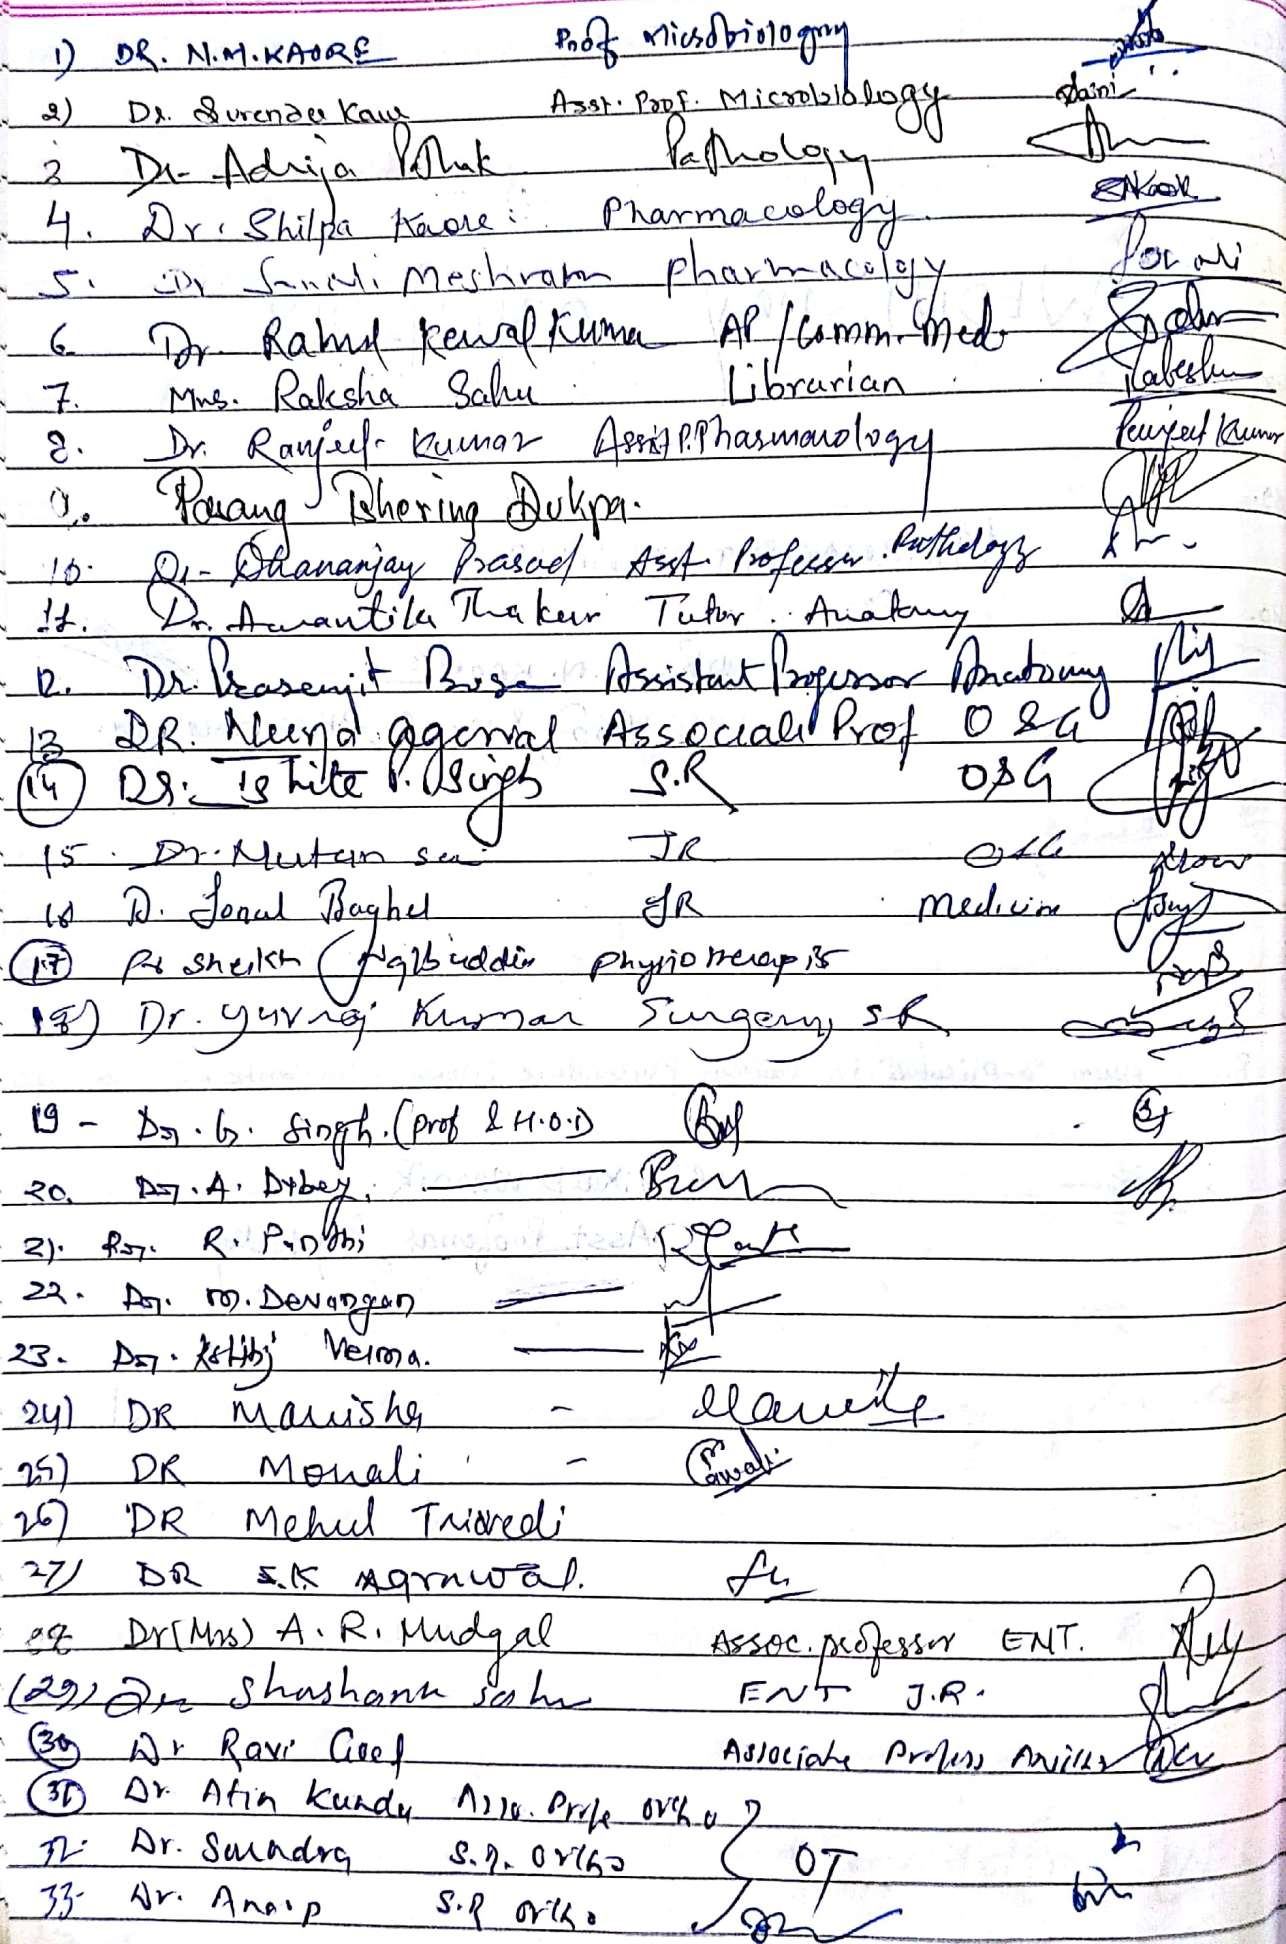 1) DR. N.M. KAORE Prof Microbiology
2) Dr. Surender Kaur Asst. Prof. Microbiology Saini
3 Dr Adrija Pathak Pathology
4. Dr. Shilpa Kaore: Pharmacology. SNKaore
5. Dr Sonali Meshram pharmacology Sonali
6 Dr. Rahul Kewal Kumar AP/Comm. Med.
7. Mrs. Raksha Sahu Librarian
8. Dr. Ranjeet Kumar Asst P. Pharmacology Ranjeet Kumar
9. Pasang Tshering Dukpa.
10. Dr- Dhananjay Prasad Asst. Professor. Pathology
11. Dr. Awantika Thakur Tutor. Anatomy
12. Dr. Prasenjit Bose Assistant Professor Anatomy
13 DR. Neerja Agarwal Associate Prof O & G
14 Dr. Ishita P. Singh S.R O&G
15. Dr. Nutan JR O&G
16 D. Sonal Baghel JR Medicine
17 Sheikh physiotherapist
18) Dr. Yuvraj Kumar Surgery SR
19 - Dr. G. Singh. (Prof & H.O.D)
20. Dr. A. Dubey.
21. R.
22. Dr. M. Devangan
23. Dr. Kshitij Verma.
24) DR Manisha -
25) DR Monali -
26) DR Mehul Trivedi
27) DR S.K Agrawal.
28 Dr (Mrs) A. R. Mudgal Assoc. professor ENT.
(29) Dr Shashank Sahu ENT J.R.
30 Dr Ravi Goel Associate Profess
31 Dr Atin Kundu Asso. Profe ortho
32. Dr. Surendra S.R. Ortho OT
33. Dr. Anoop S.R ortho